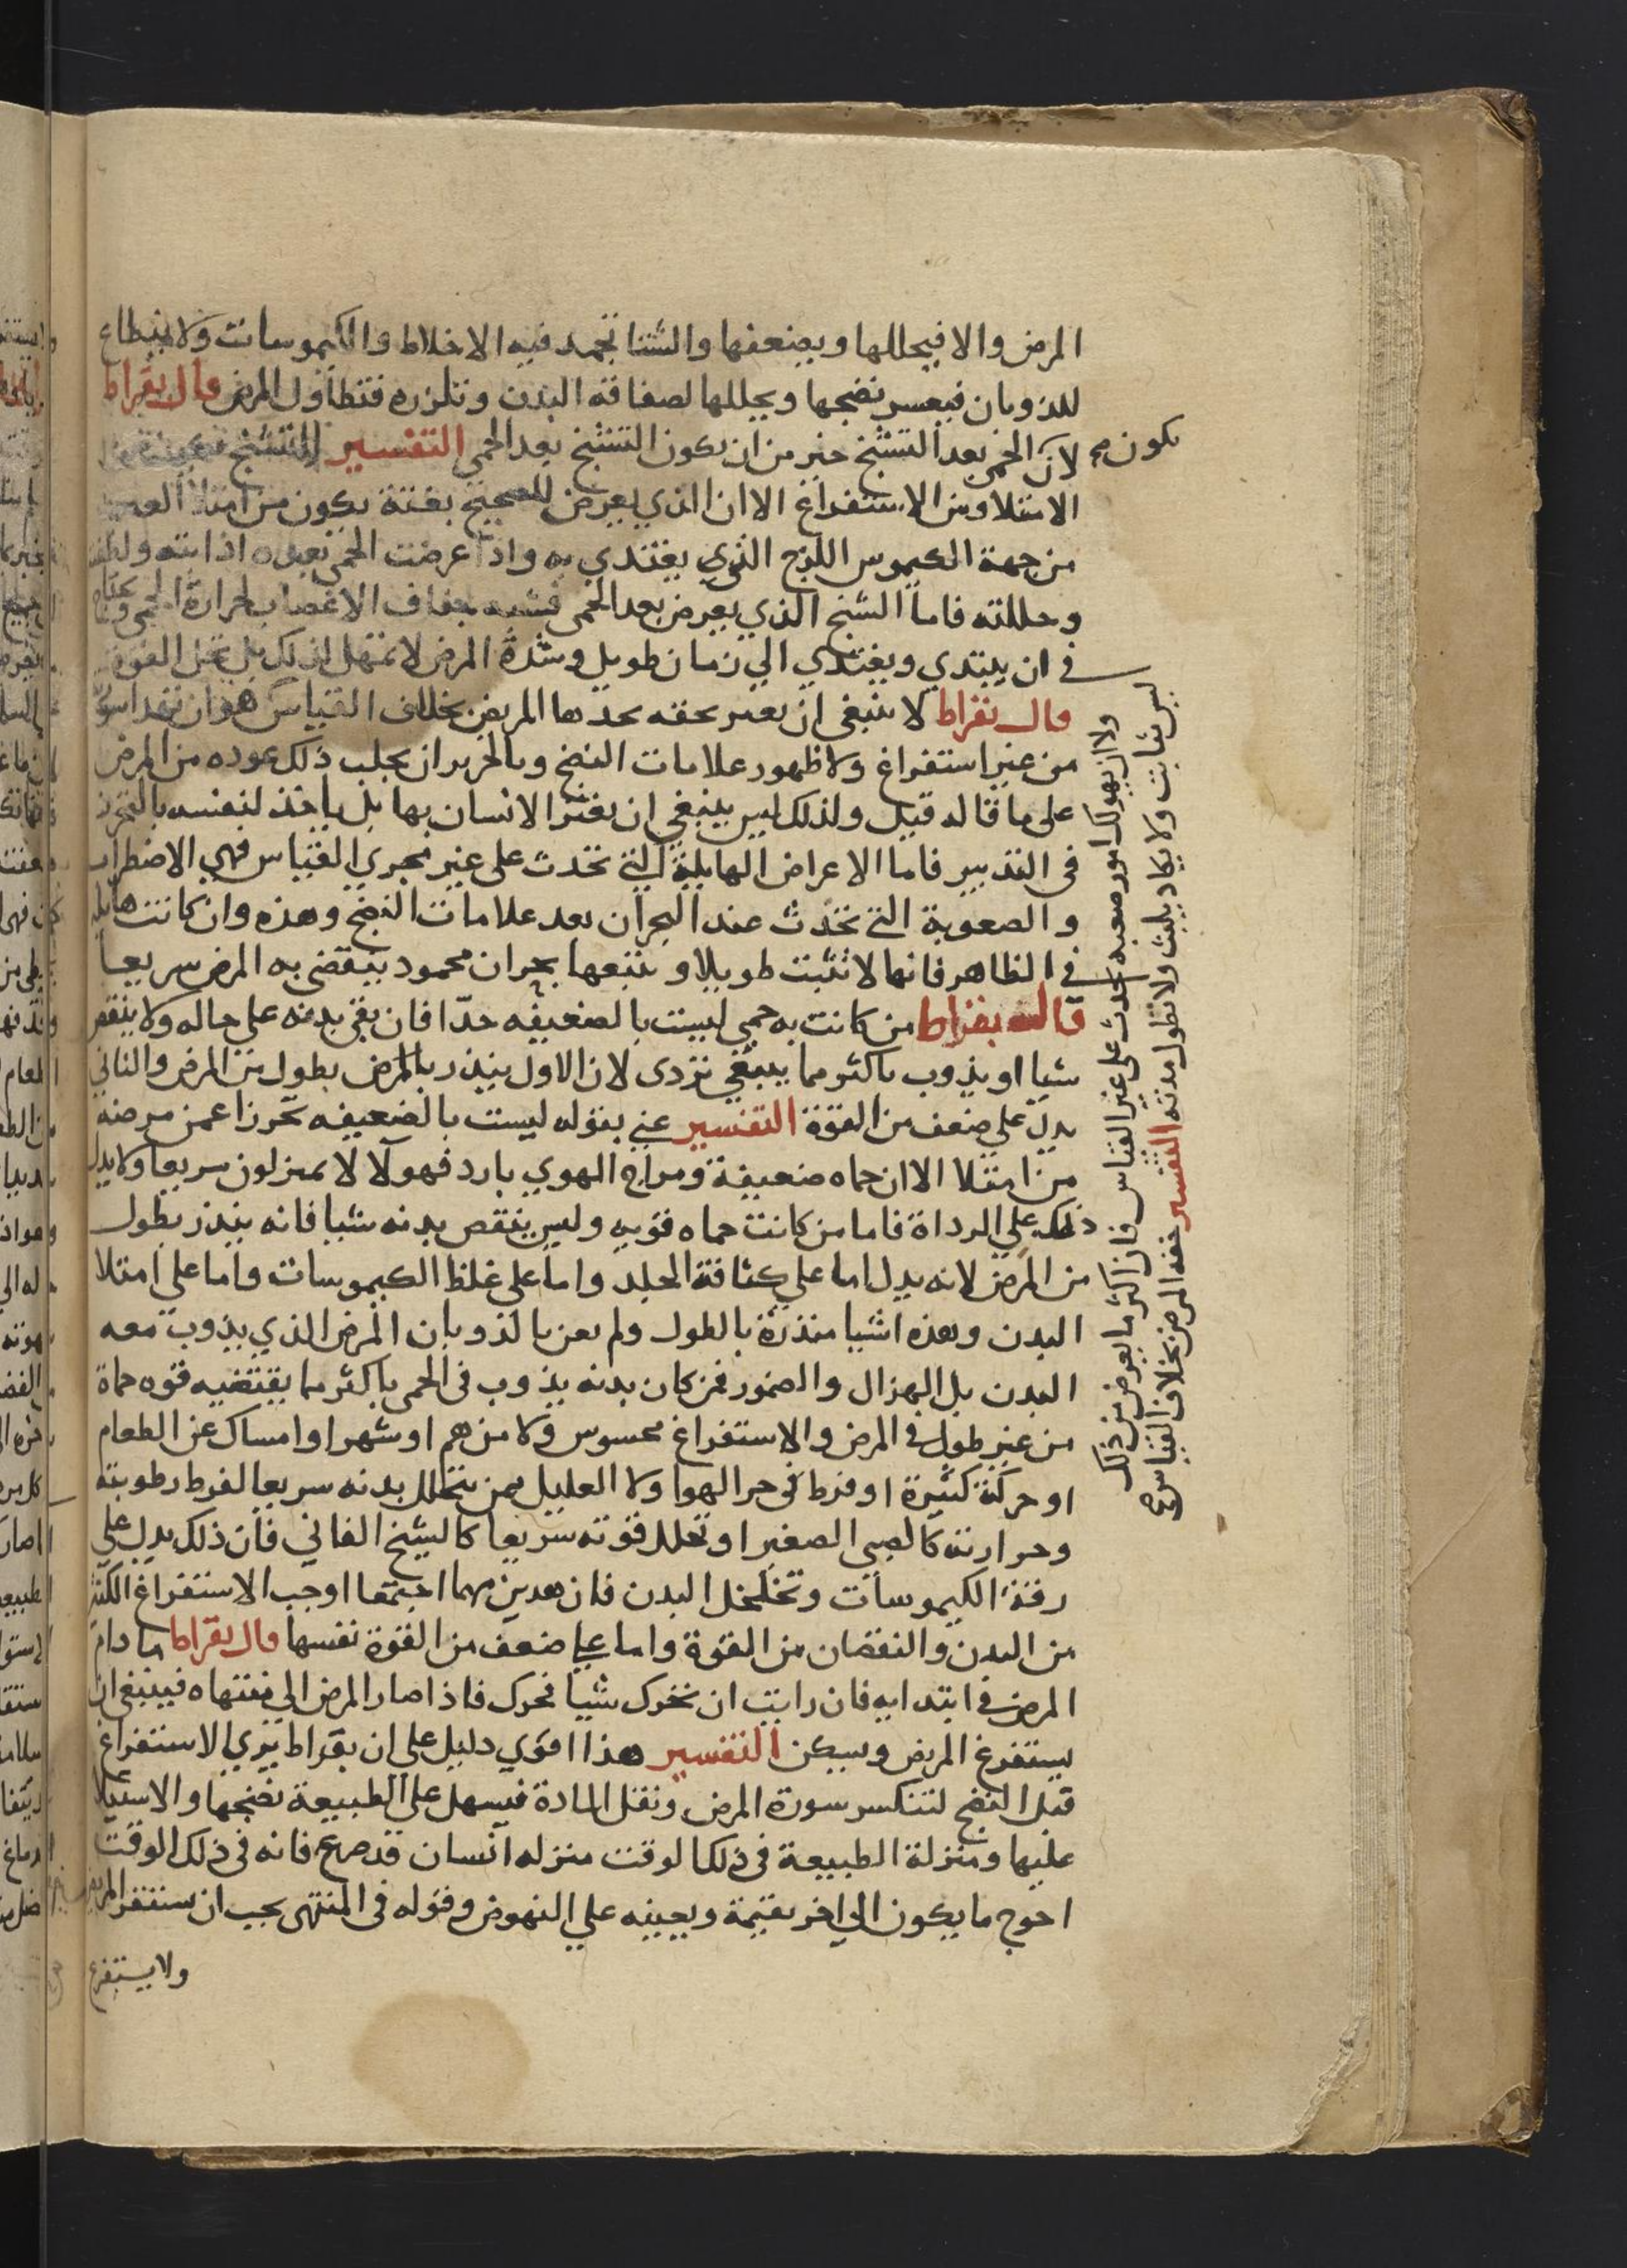 المرض والا فيحللها ويضعفها والشتا تجمد فيه الاخلاط والكيموسات ولا ينطاع
للذوبان فيعسر نضجها ويحللها لصفاقة البدن وتلززه فتطاول المرض قال بقراط
لان الحمى بعد التشنج خير من ان يكون التشنج بعد الحمى التفسير التشنج
يكون
الامتلا ومن الاستفراغ الا ان الذي يعرض للصحيح بغتة يكون من امتلا العصب
من جهة الكيموس اللزج الذي يغتذي به واذا عرضت الحمى بعده اذابته ولطفته
وحللته فاما التشنج الذي يعرض بعد الحمى فسببه جفاف الاعصاب لحرارة الحمى
في ان يبتدي ويغتذي الي زمان طويل وشدة المرض لا تمهل لذلك بل تحل القوة
قال بقراط لا ينبغي ان يغتر بخفه يجدها المريض بخلاف القياس هو ان
من غير استفراغ ولا ظهور علامات النضج وبالحري ان يجلب ذلك عوده من المرض
على ما قاله قبل ولذلك ليس ينبغي ان يغتر الانسان بها بل ياخذ لنفسه بالتحرز
في التدبير فاما الاعراض الهايلة التي تحدث على غير مجري القياس فهي الاضطراب
والصعوبة التي تحدث عند البحران بعد علامات النضج وهذه وان كانت هايله
في الظاهر فانها لا تثبت طويلا و يتبعها بحران محمود ينقضي به المرض سريعا
قال بقراط من كانت به حمي ليست بالضعيفه جدا فان بقي بدنه علي حاله ولا ينقص
شيا او يذوب باكثر مما ينبغي نردي لان الاول ينذر بالمرض بطول من المرض والثاني
يدل علي ضعف من القوة التفسير عني بقوله ليست بالضعيفه تحرزا عمن مرضه
من امتلا الا ان حماه ضعيفة ومزاج الهوي بارد فهولا لا يهزلون سريعا ولا يدل
ذلك علي الرداة فاما من كانت حماه قويه وليس ينقص بدنه شيا فانه ينذر بطول
من المرض لانه يدل اما علي كثافة الجلد واما على غلظ الكيموسات واما على امتلا
البدن وهذه اشيا منذرة بالطول ولم يعن بالذوبان المرض الذي يذوب معه
البدن بل الهزال والضمور فمن كان بدنه يذوب في الحمى باكثر مما يقتضيه قوه حماة
من غير طول في المرض والاستفراغ محسوس ولا من هم او شهر او امساك عن الطعام
او حركة كثيرة او فرط في حر الهوا ولا العليل ممن يتحلل بدنه سريعا لفرط رطوبته
وحرارته كالصبي الصغير او تحلل قوته سريعا كالشيخ الفاني فان ذلك يدل علي
رقة الكيموسات وتخلخل البدن فان هذين مهما اجتمعا اوجب الاستفراغ الكثير
من البدن والنقصان من القوة واما على ضعف من القوة نفسها قال بقراط ما دام
المرض في ابتدايه فان رايت ان تحرك شيا فحرك فاذا صار المرض الي منتهاه فينبغي ان
يستفرغ المريض ويسكن التفسير هذا اقوي دليل على ان بقراط يري الاستفراغ
قبل النضج لتنكسر سورة المرض وتقل المادة فيسهل على الطبيعة نضجها والاستيلا
عليها ومنزلة الطبيعة في ذلك الوقت منزله انسان قد صرع فانه في ذلك الوقت
احوج ما يكون الي اخر يقيمة ويعينه علي النهوض وقوله في المنتهى يجب ان
ولا يستفرغ
ولا ان يهولك امور صعبه تحدث على غير القياس فان اكثر ما يعرض من ذلك
ليس بثابت ولا يكاد يلبث ولا تطول مدته التفسير خفه المرض بخلاف القياس